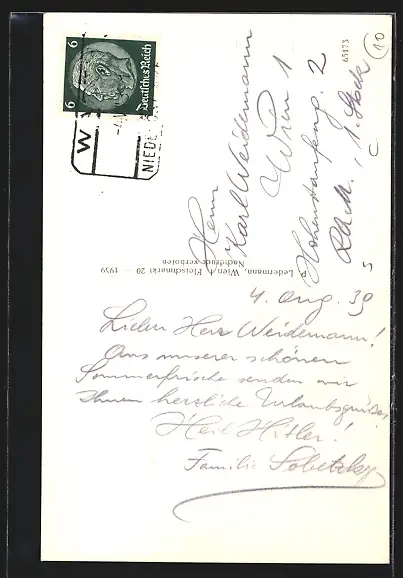 6
6
Deutsches Reich
W
NIEDE
65173
10
Herrn
Karl Weidemann
Wien 1
Hohenstaufeng. 2
1. Stock
P. Ledermann, Wien I, Fleischmarkt 20 — 1939
Nachdruck verboten
4. Aug. 39
Lieber Herr Weidemann!
Aus unserer schönen
Sommerfrische senden wir
Ihnen herzliche Urlaubsgrüße.
Heil Hitler!
Familie Sobetzky